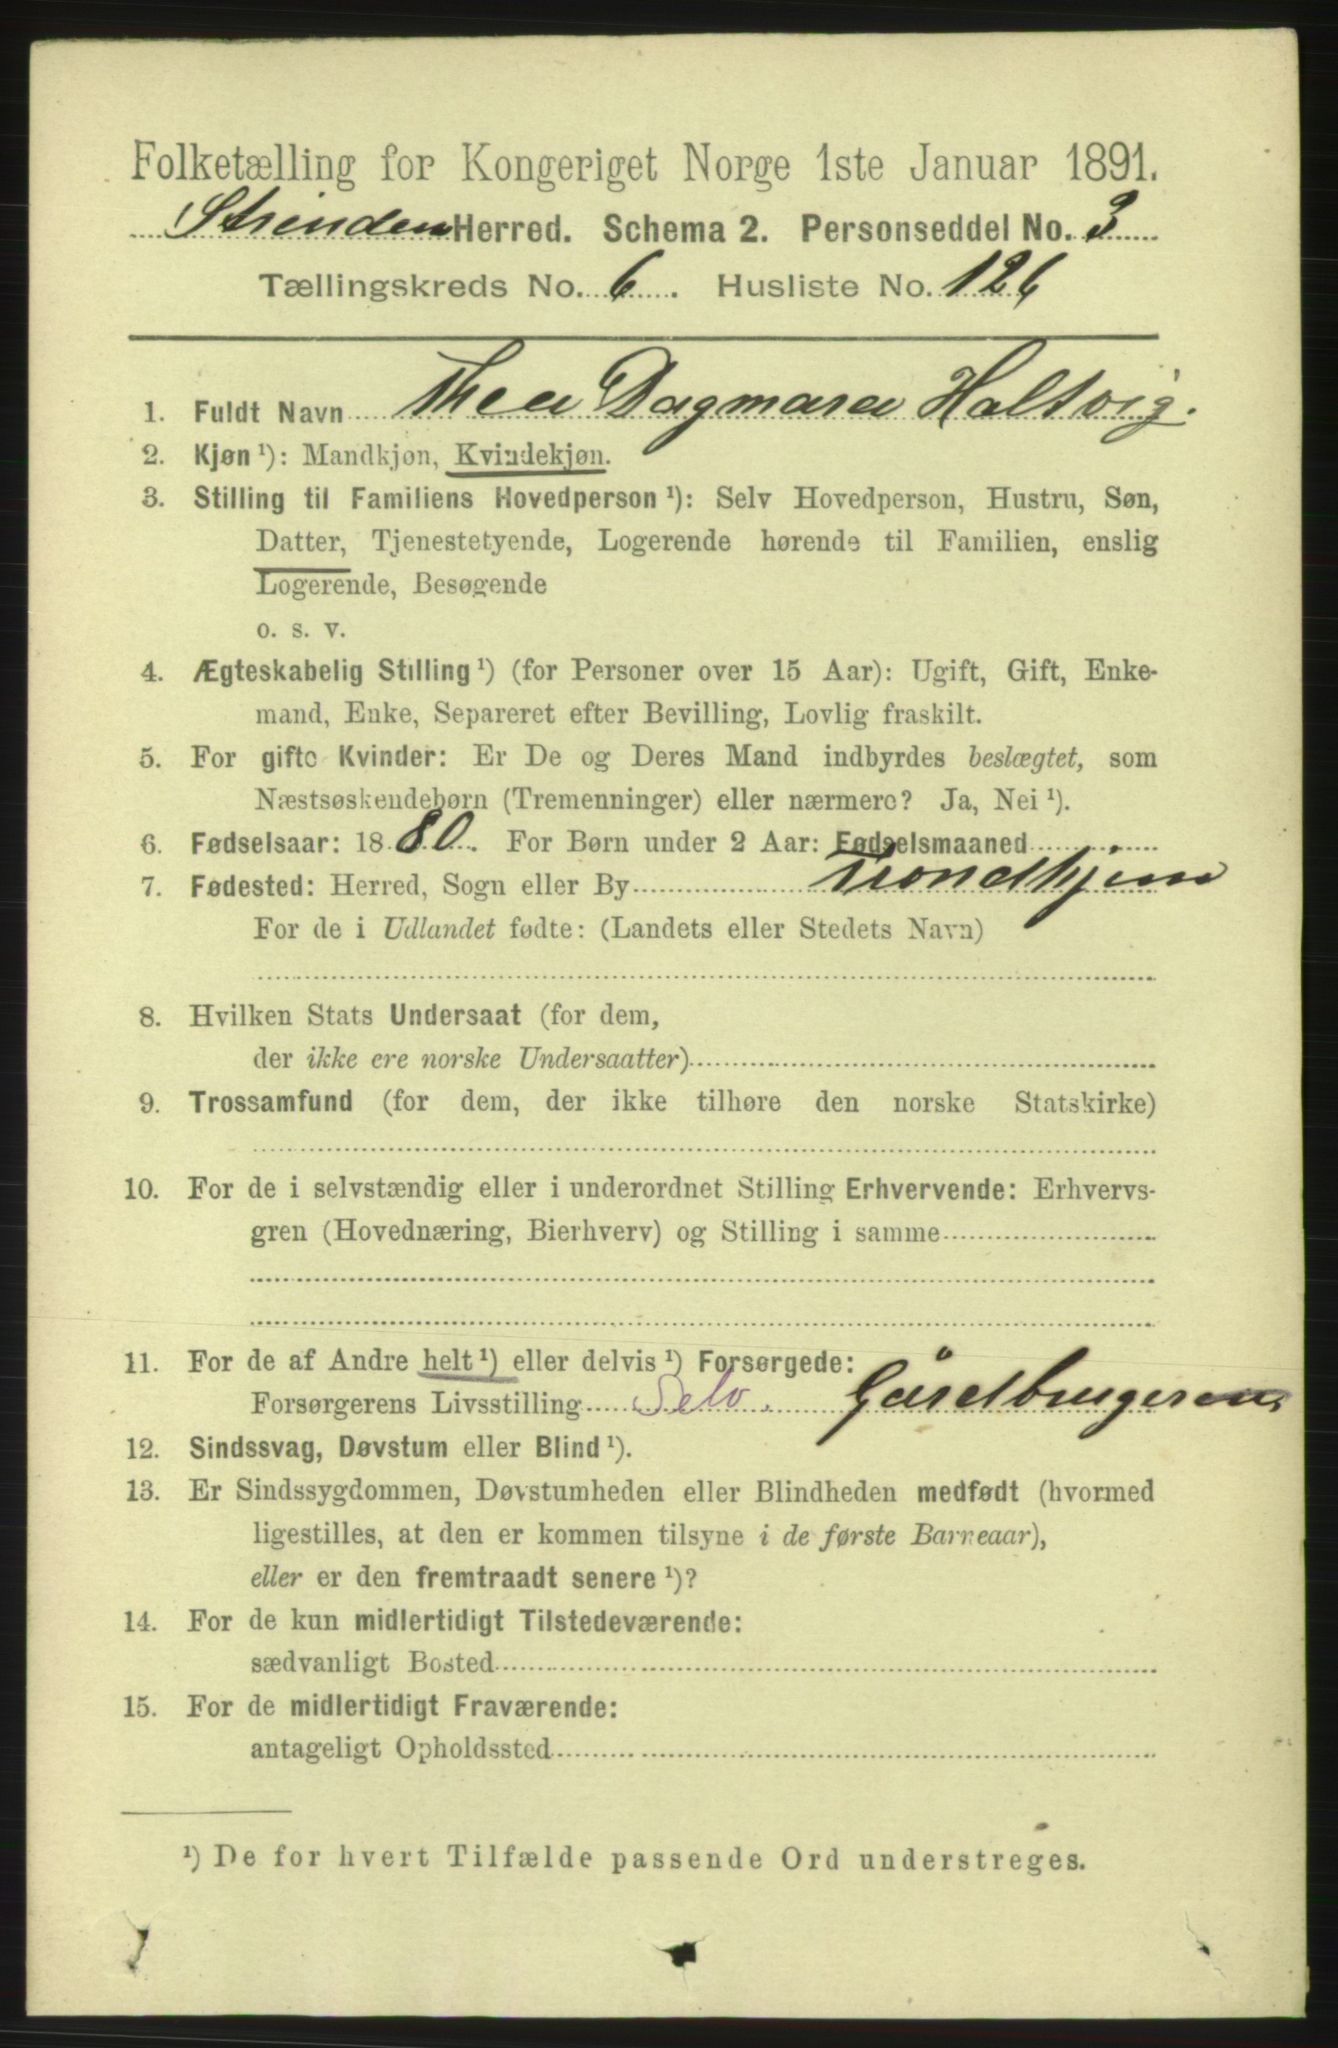 Folketælling for Kongeriget Norge 1ste Januar 1891.
Strinden Herred. Schema 2. Personseddel No. 3
Tællingskreds No. 6. Husliste No. 126
1. Fuldt Navn Thea Dagmara Holtvig.
2. Kjøn ¹): Mandkjøn, Kvindekjøn.
3. Stilling til Familiens Hovedperson ¹): Selv Hovedperson, Hustru, Søn,
Datter, Tjenestetyende, Logerende hørende til Familien, enslig
Logerende, Besøgende
o. s. v.
4. Ægteskabelig Stilling ¹) (for Personer over 15 Aar): Ugift, Gift, Enke-
mand, Enke, Separeret efter Bevilling, Lovlig fraskilt.
5. For gifte Kvinder: Er De og Deres Mand indbyrdes beslægtet, som
Næstsøskendebørn (Tremenninger) eller nærmere? Ja, Nei ¹).
6. Fødselsaar: 1880. For Børn under 2 Aar: Fødselsmaaned
7. Fødested: Herred, Sogn eller By Trondhjem
For de i Udlandet fødte: (Landets eller Stedets Navn)
8. Hvilken Stats Undersaat (for dem,
der ikke ere norske Undersaatter)
9. Trossamfund (for dem, der ikke tilhøre den norske Statskirke)
10. For de i selvstændig eller i underordnet Stilling Erhvervende: Erhvervs-
gren (Hovednæring, Bierhverv) og Stilling i samme
11. For de af Andre helt ¹) eller delvis ¹) Forsørgede:
Forsørgerens Livsstilling Selv. Gårdbrugeren
12. Sindssvag, Døvstum eller Blind ¹).
13. Er Sindssygdommen, Døvstumheden eller Blindheden medfødt (hvormed
ligestilles, at den er kommen tilsyne i de første Barneaar),
eller er den fremtraadt senere ¹)?
14. For de kun midlertidigt Tilstedeværende:
sædvanligt Bosted
15. For de midlertidigt Fraværende:
antageligt Opholdssted
¹) De for hvert Tilfælde passende Ord understreges.